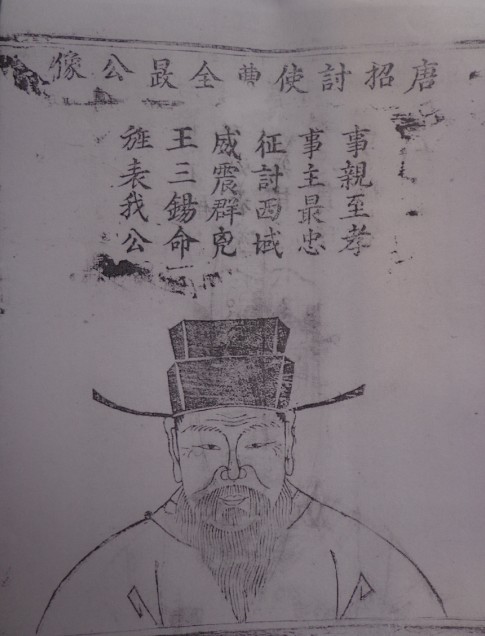 唐招討使曹全晸公像
事親至孝
事主最忠
征討西域
威震群兇
王三錫命
旌表我公